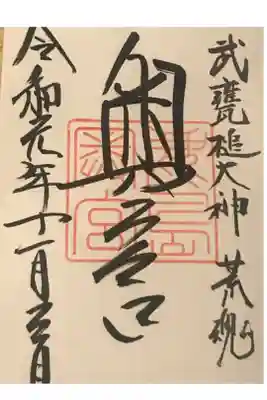 武甕槌大神 荒魂
奥宮
令和元年十一月 日